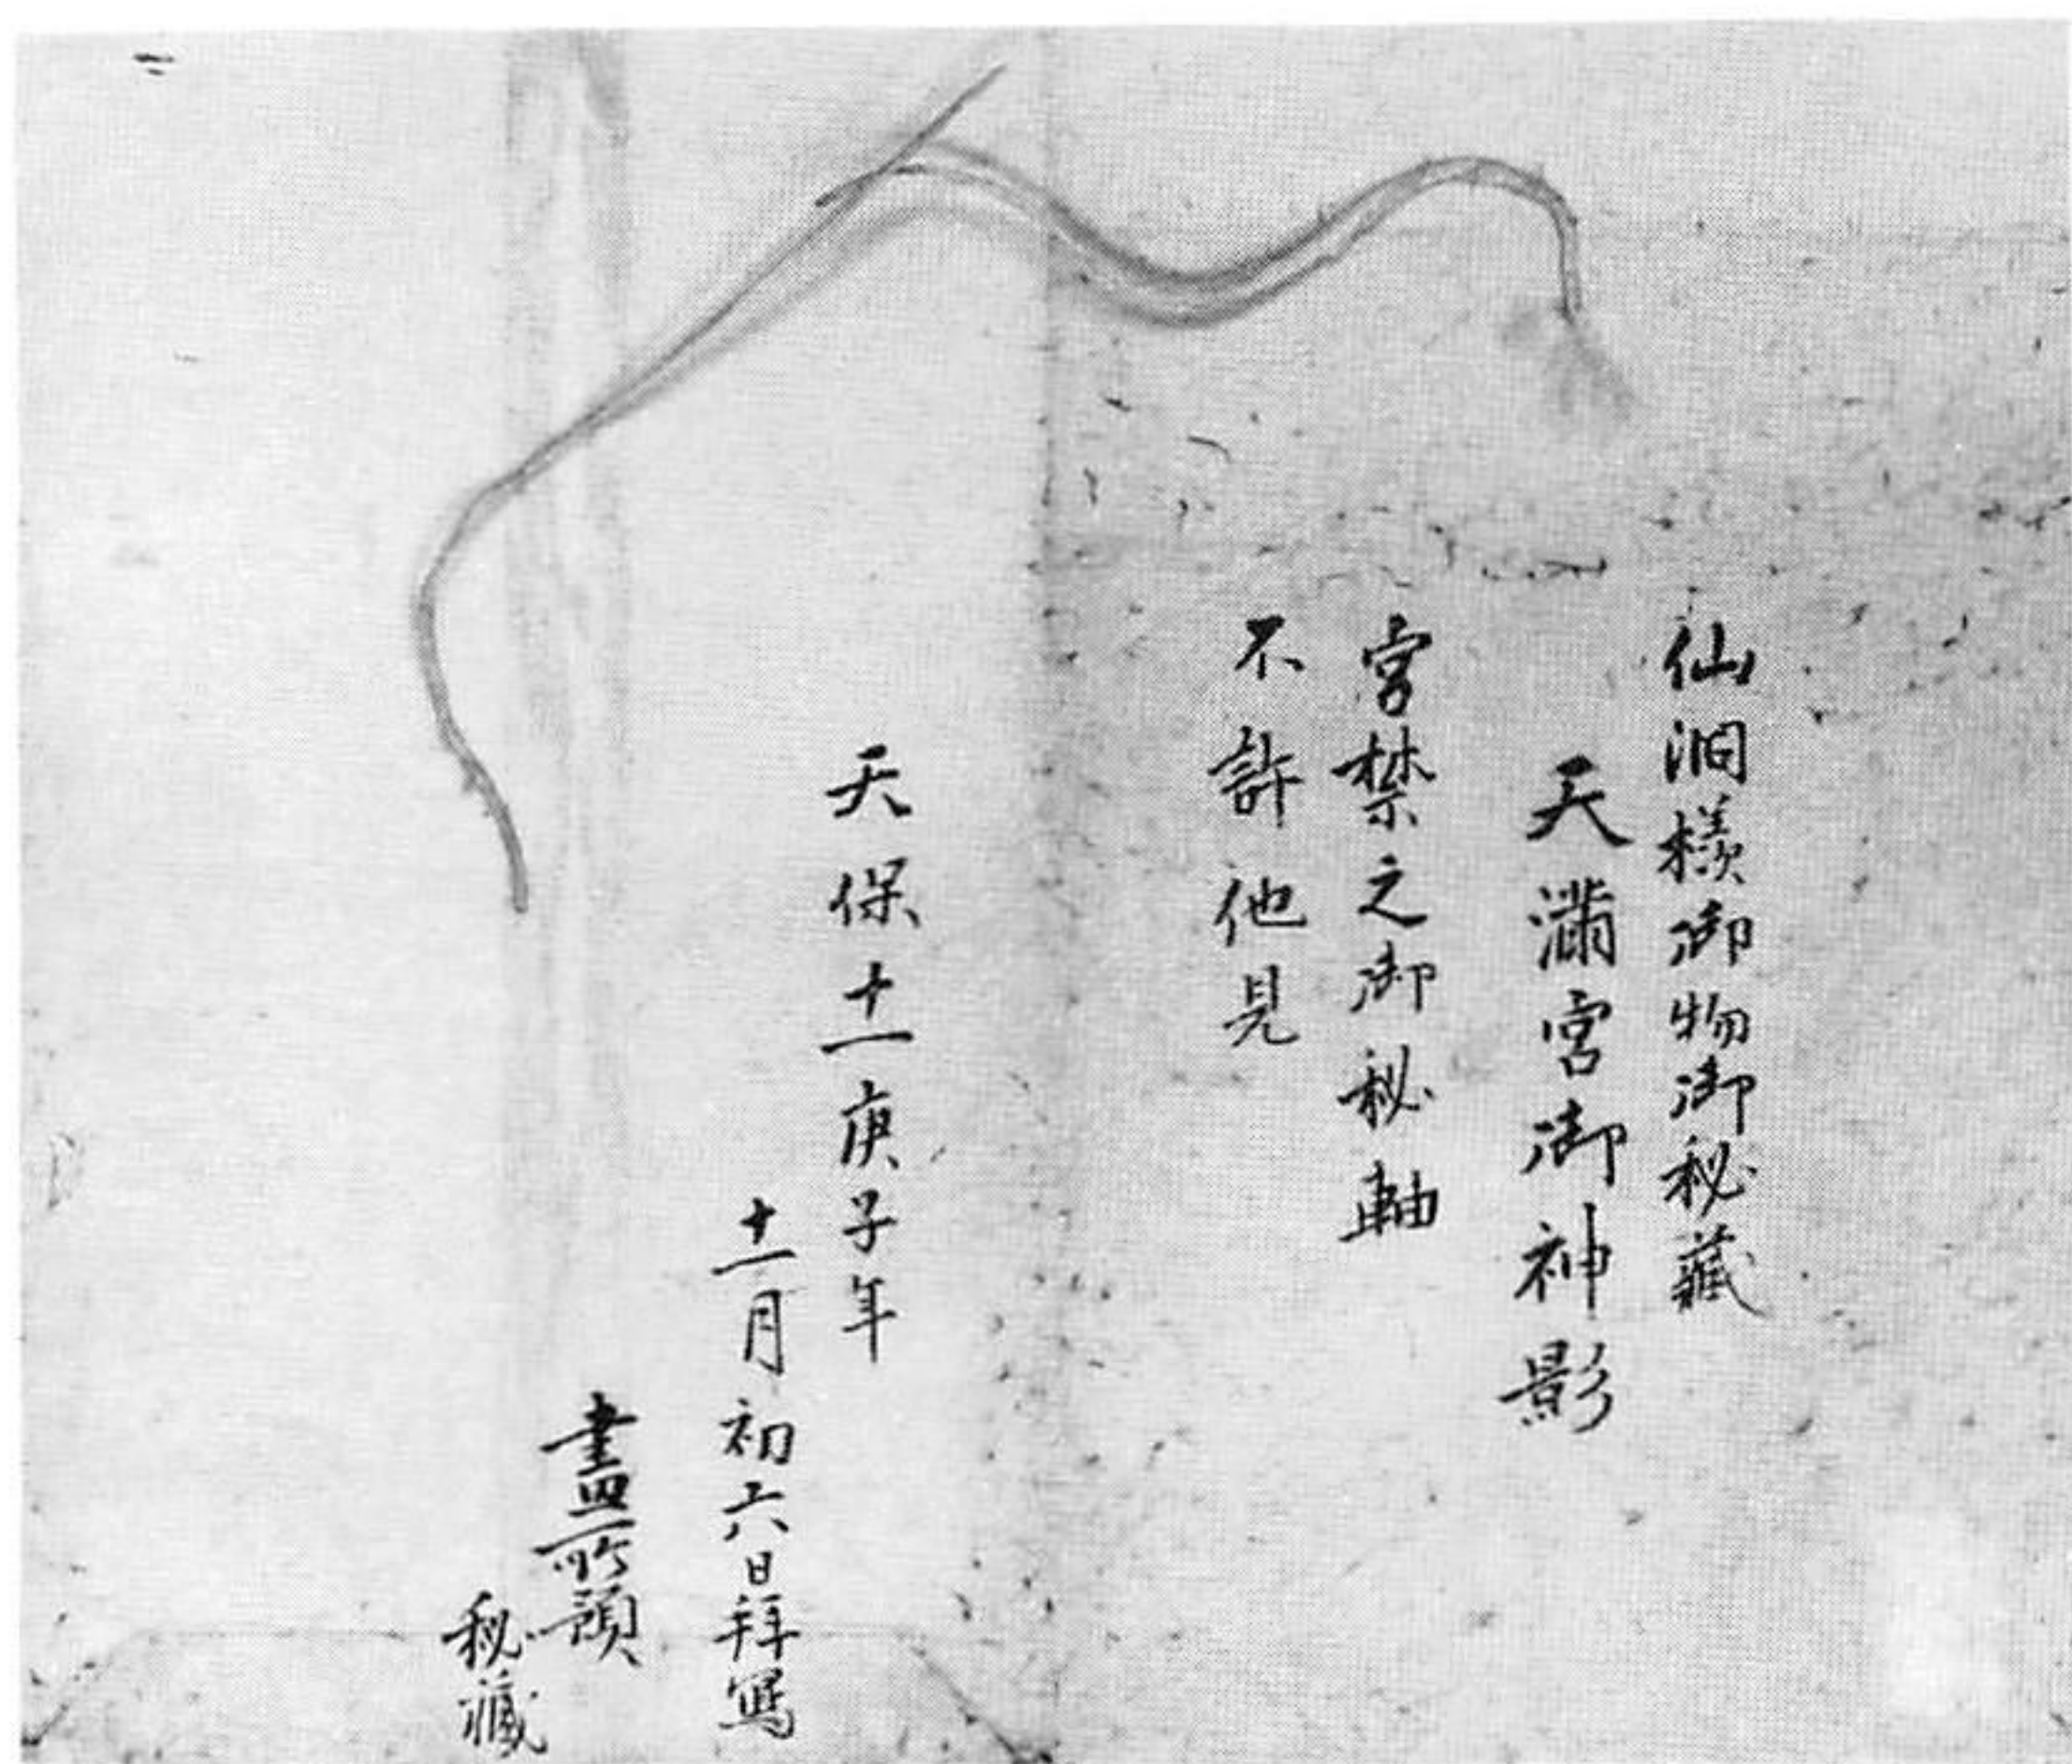 仙洞様御物御秘蔵
天満宮御神影
宮禁之御秘軸
不許他見
天保十一庚子年
十一月初六日拝写
畫所預
秘蔵